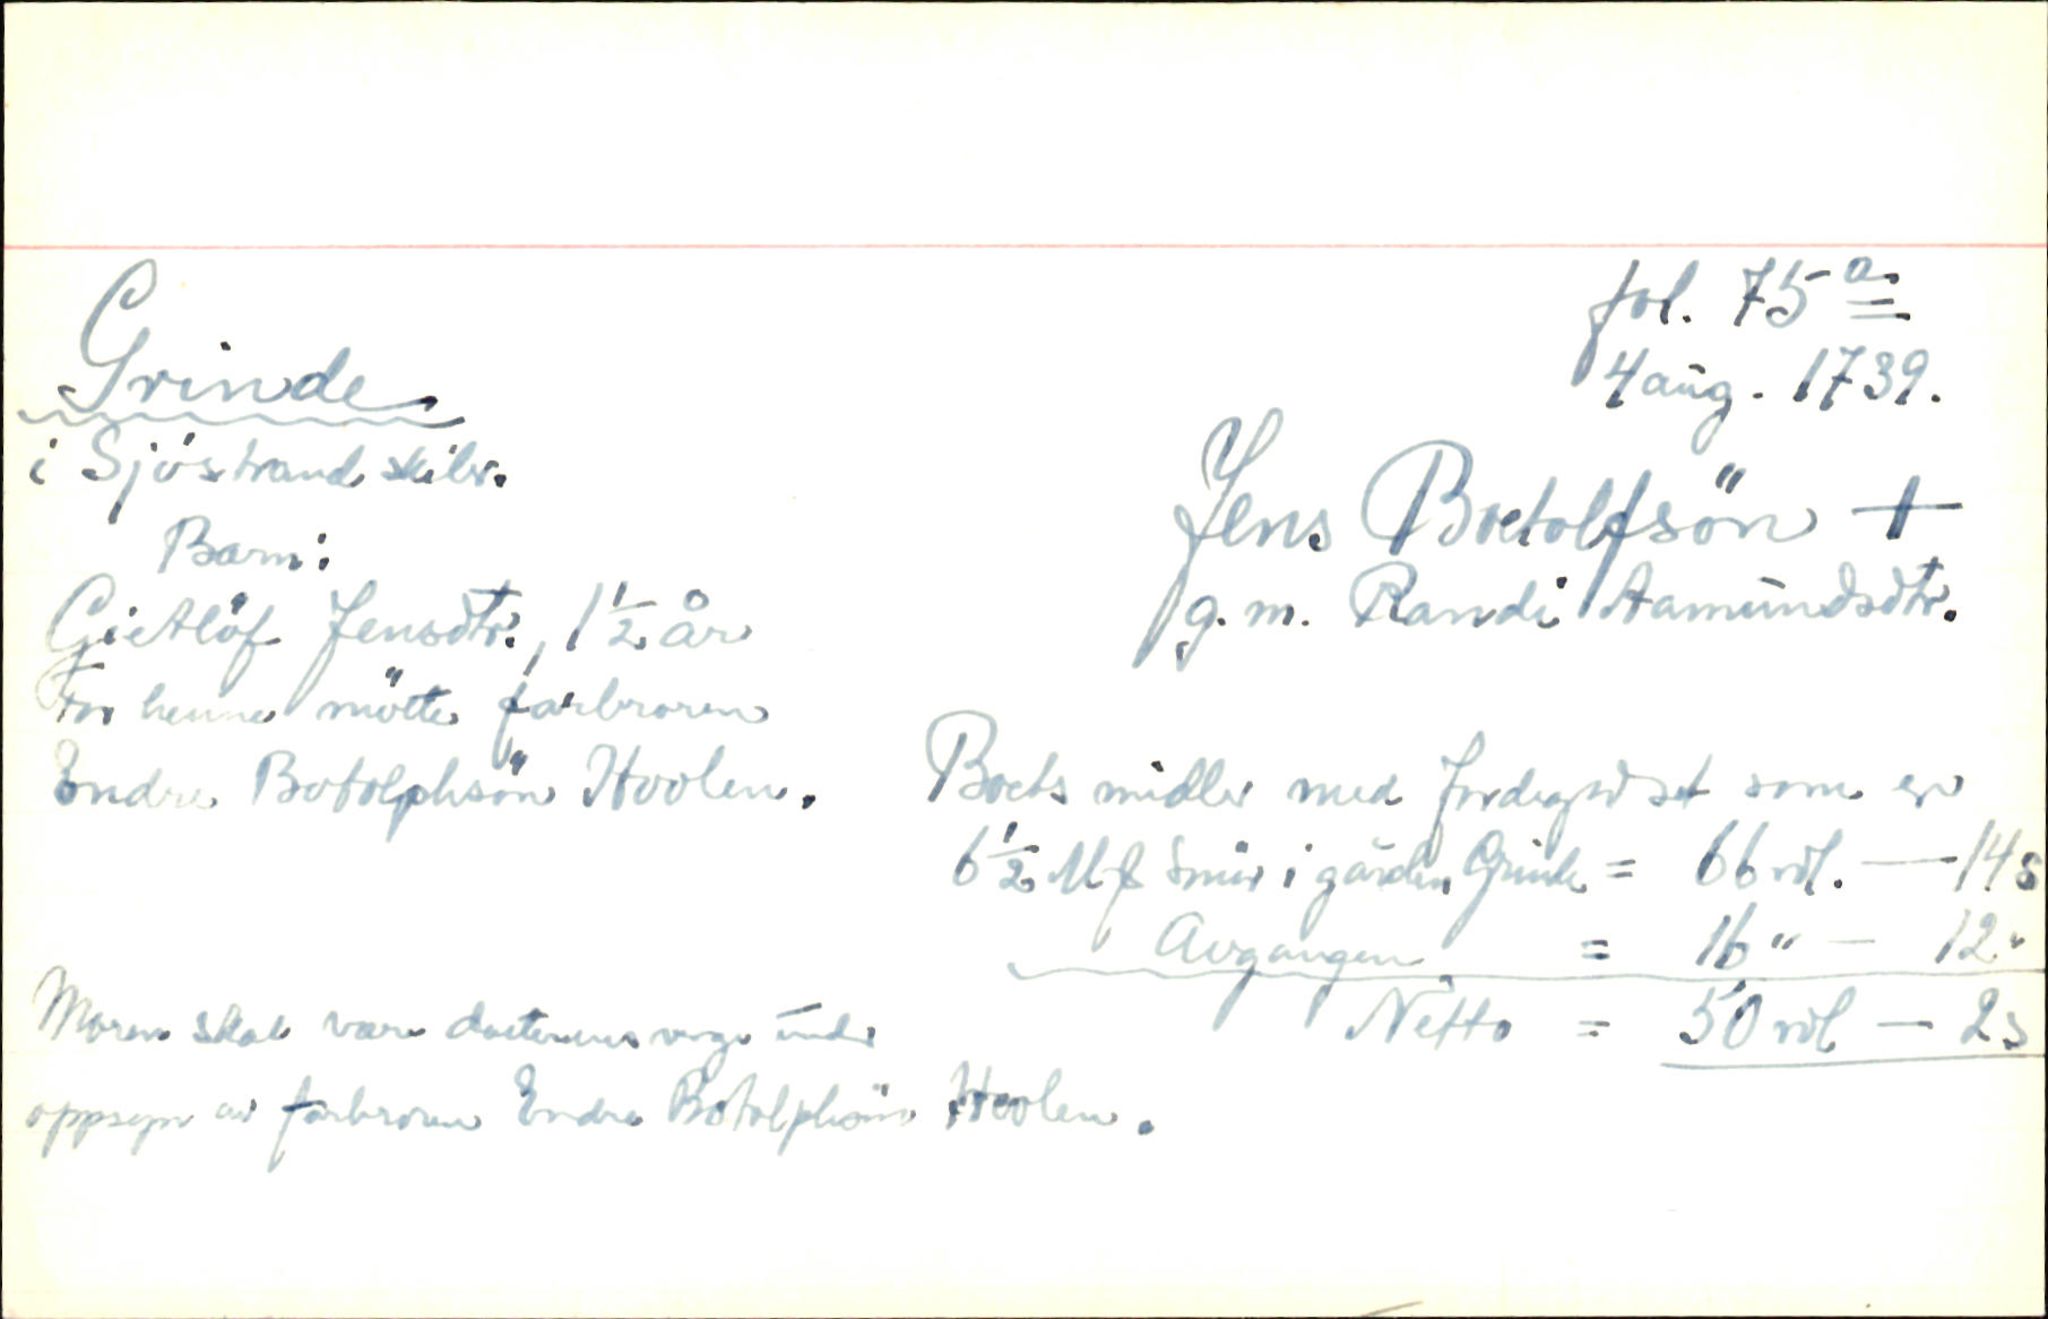 fol. 75 a
4 aug. 1739.
Grinde
i Sjöstrand skibr.
Jens Boetolfsön +
g. m. Randi Aamundsdtr.
Barn:
Gietlöf Jensdtr., 1½ år
For henne mötte farbroren
Endre Botolphsön Hoolen.
Boets midler med jordegodset som er
6½ Mk Smör i gården Grinde = 66 rdl. — 14 s
Avgangen = 16 " — 12 "
Netto = 50 rdl — 2 s
Moren skal være datterens verge under
oppsyn av farbroren Endre Botolphsön Hoolen.